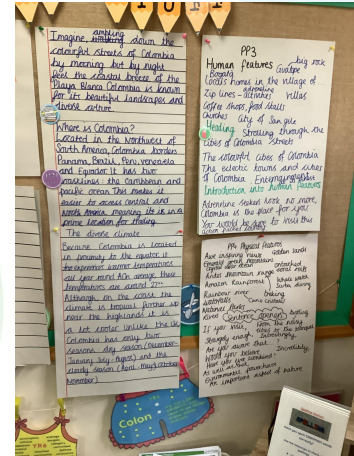 ambling
Imagine walking down the
colourful streets of Colombia
by morning but by night
feel the coastal breeze of the
Playa Blanca. Colombia is known
for its beautiful landscapes and
diverse culture.
Where is Colombia?
Located in the Northwest of
South America, Colombia borders
Panama, Brazil, Peru, Venezuela
and Equador. It has two
coastlines: the Caribbean and
pacific ocean. This makes it
easier to access central and
North America, meaning its is in a
prime location for trading
The diverse climate
Because Colombia is located
in proximity to the equator, it
experiences warmer temperatures
all year round. On average these
temperatures are around 27°
Although on the coast the
climate is tropical, further up
near the highlands it is
a lot cooler. Unlike the UK
Colombia has only two
seasons: dry season (December-
January, July-August) and the
cloudy season (April-May, October-
November)
PP3
Human features - big rock
Bogata Guatape
Locals homes in the village of
adrenaline
Zip lines - activities villas
Coffee shops, food stalls
Churches City of San Gile
Heading Strolling through the
cities of Colombia streets
The colourful cities of Colombia
The eclectic towns and cities
of Colombia
Introduction into human features
Adrenaline seekers look no more,
Colombia is the place for you!
You would be sure to visit this
action packed
PP4 Physical features
Awe inspiring views golden sands
Andes mountain range coral reefs
Amazon Rainforest Whale watch
Rainbow river Scuba diving
Waterfalls hiking
National Parks
Sentence openers
If you visit,
Strangely enough, Interestingly,
Are you aware that...?
Would you believe Incredibly,
Have you ever wondered
As well as this,
Furthermore
An important aspect of nature
Colon
YR6